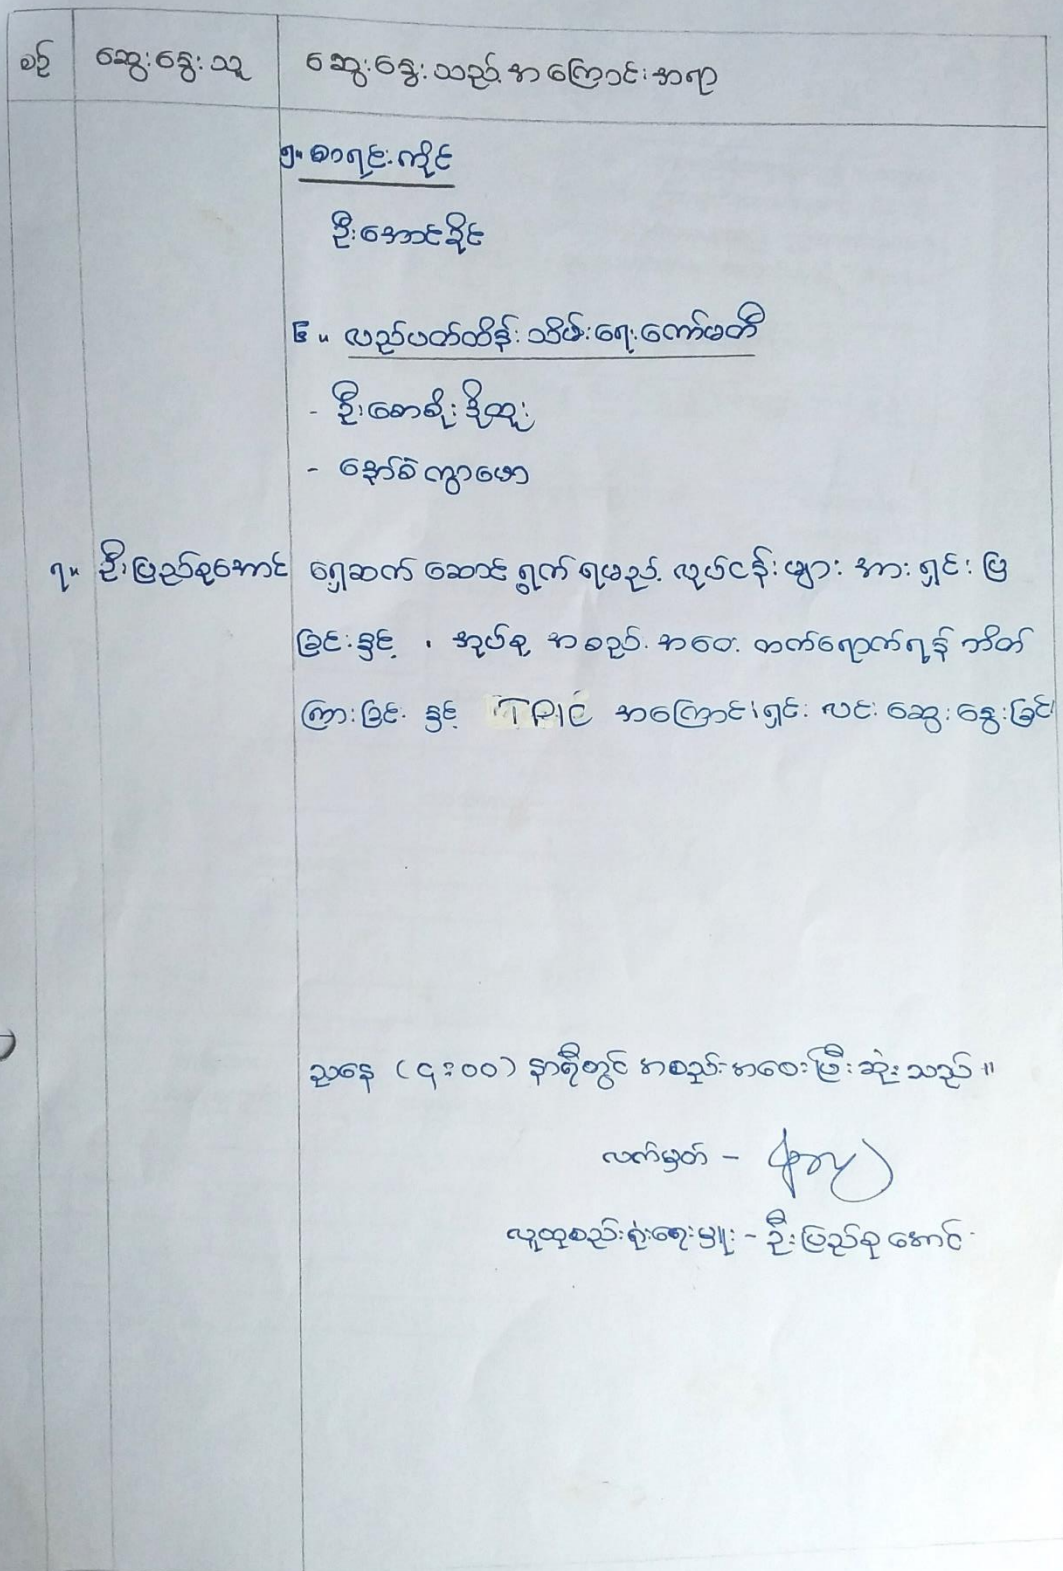 စဉ် ဆွေးနွေးသူ ဆွေးနွေးသည့်အကြောင်းအရာ
၅။ စာရင်းကိုင်
ဦးအောင်ခိုင်
၆။ လည်ပတ်ထိန်းသိမ်းရေးကော်မတီ
- ဦးစောစိုးဒိုထူး
- နော်စံကွာဖော
၇။ ဦးပြည်စုအောင် ရှေ့ဆက် ဆောင်ရွက် ရမည့် လုပ်ငန်းများ အား ရှင်းပြ
ခြင်းနှင့် ၊ အုပ်စု အစည်းအဝေး တက်ရောက်ရန် ဘိတ်
ကြားခြင်း နှင့် TPIC အကြောင်းရှင်းလင်းဆွေးနွေးခြင်း
ညနေ (၄း၀၀) နာရီတွင် အစည်းအဝေးပြီးဆုံးသည်။
လက်မှတ် -
လူထုစည်းရုံးရေးမှူး - ဦးပြည်စုအောင်